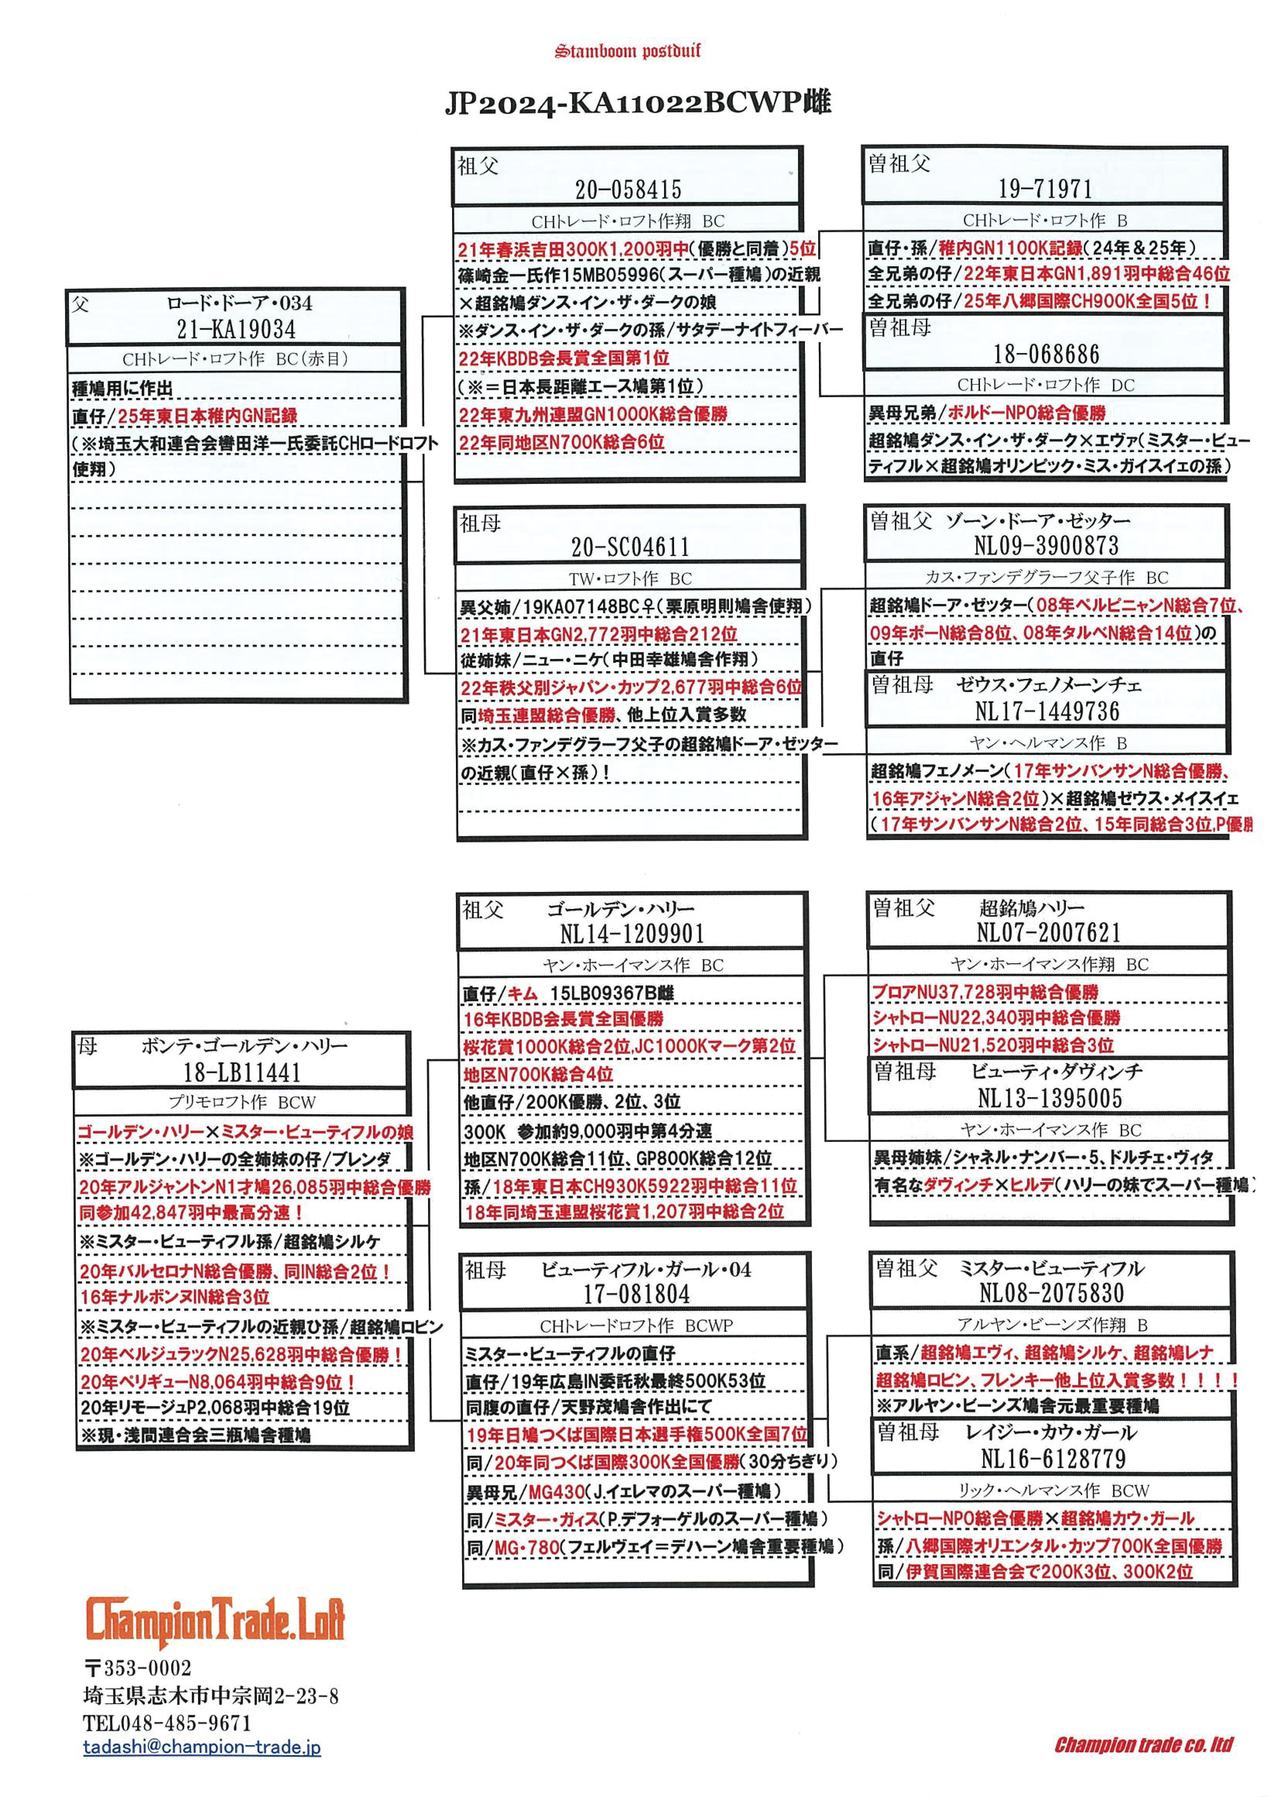 Stamboom postduif
JP2024-KA11022BCWP雌
父 ロード・ドーア・034
21-KA19034
CHトレード・ロフト作 BC(赤目)
種鳩用に作出
直仔/25年東日本稚内GN記録
(※埼玉大和連合会轡田洋一氏委託CHロードロフト
使翔)
祖父
20-058415
CHトレード・ロフト作翔 BC
21年春浜吉田300K1,200羽中(優勝と同着)5位
篠崎金一氏作15MB05996(スーパー種鳩)の近親
×超銘鳩ダンス・イン・ザ・ダークの娘
※ダンス・イン・ザ・ダークの孫/サタデーナイトフィーバー
22年KBDB会長賞全国第1位
(※=日本長距離エース鳩第1位)
22年東九州連盟GN1000K総合優勝
22年同地区N700K総合6位
曽祖父
19-71971
CHトレード・ロフト作 B
直仔・孫/稚内GN1100K記録(24年&25年)
全兄弟の仔/22年東日本GN1,891羽中総合46位
全兄弟の仔/25年八郷国際CH900K全国5位!
曽祖母
18-068686
CHトレード・ロフト作 DC
異母兄弟/ボルドーNPO総合優勝
超銘鳩ダンス・イン・ザ・ダーク×エヴァ(ミスター・ビュー
ティフル×超銘鳩オリンピック・ミス・ガイスイェの孫)
祖母
20-SC04611
TW・ロフト作 BC
異父姉/19KA07148BC♀(栗原明則鳩舎使翔)
21年東日本GN2,772羽中総合212位
従姉妹/ニュー・ニケ(中田幸雄鳩舎作翔)
22年秩父別ジャパン・カップ2,677羽中総合6位
同埼玉連盟総合優勝、他上位入賞多数
※カス・ファンデグラーフ父子の超銘鳩ドーア・ゼッター
の近親(直仔×孫)!
曽祖父 ゾーン・ドーア・ゼッター
NL09-3900873
カス・ファンデグラーフ父子作 BC
超銘鳩ドーア・ゼッター(08年ペルピニャンN総合7位、
09年ポーN総合8位、08年タルベN総合14位)の
直仔
曽祖母 ゼウス・フェノメーンチェ
NL17-1449736
ヤン・ヘルマンス作 B
超銘鳩フェノメーン(17年サンバンサンN総合優勝、
16年アジャンN総合2位)×超銘鳩ゼウス・メイスイェ
(17年サンバンサンN総合2位、15年同総合3位,P優
母 ボンテ・ゴールデン・ハリー
18-LB11441
プリモロフト作 BCW
ゴールデン・ハリー×ミスター・ビューティフルの娘
※ゴールデン・ハリーの全姉妹の仔/ブレンダ
20年アルジャントンN1才鳩26,085羽中総合優勝
同参加42,847羽中最高分速!
※ミスター・ビューティフル孫/超銘鳩シルケ
20年バルセロナN総合優勝、同IN総合2位!
16年ナルボンヌIN総合3位
※ミスター・ビューティフルの近親ひ孫/超銘鳩ロビン
20年ベルジュラックN25,628羽中総合優勝!
20年ペリギューN8,064羽中総合9位!
20年リモージュP2,068羽中総合19位
※現・浅間連合会三瓶鳩舎種鳩
祖父 ゴールデン・ハリー
NL14-1209901
ヤン・ホーイマンス作 BC
直仔/キム 15LB09367B雌
16年KBDB会長賞全国優勝
桜花賞1000K総合2位,JC1000Kマーク第2位
地区N700K総合4位
他直仔/200K優勝、2位、3位
300K 参加約9,000羽中第4分速
地区N700K総合11位、GP800K総合12位
孫/18年東日本CH930K5922羽中総合11位
18年同埼玉連盟桜花賞1,207羽中総合2位
曽祖父 超銘鳩ハリー
NL07-2007621
ヤン・ホーイマンス作翔 BC
ブロアNU37,728羽中総合優勝
シャトローNU22,340羽中総合優勝
シャトローNU21,520羽中総合3位
曽祖母 ビューティ・ダヴィンチ
NL13-1395005
ヤン・ホーイマンス作 BC
異母姉妹/シャネル・ナンバー・5、ドルチェ・ヴィタ
有名なダヴィンチ×ヒルデ(ハリーの妹でスーパー種鳩)
祖母 ビューティフル・ガール・04
17-081804
CHトレードロフト作 BCWP
ミスター・ビューティフルの直仔
直仔/19年広島IN委託秋最終500K53位
同腹の直仔/天野茂鳩舎作出にて
19年日鳩つくば国際日本選手権500K全国7位
同/20年同つくば国際300K全国優勝(30分ちぎり)
異母兄/MG430(J.イェレマのスーパー種鳩)
同/ミスター・ガイス(P.デフォーゲルのスーパー種鳩)
同/MG・780(フェルヴェイ=デハーン鳩舎重要種鳩)
曽祖父 ミスター・ビューティフル
NL08-2075830
アルヤン・ビーンズ作翔 B
直系/超銘鳩エヴィ、超銘鳩シルケ、超銘鳩レナ
超銘鳩ロビン、フレンキー他上位入賞多数!!!!
※アルヤン・ビーンズ鳩舎元最重要種鳩
曽祖母 レイジー・カウ・ガール
NL16-6128779
リック・ヘルマンス作 BCW
シャトローNPO総合優勝×超銘鳩カウ・ガール
孫/八郷国際オリエンタル・カップ700K全国優勝
同/伊賀国際連合会で200K3位、300K2位
ChampionTrade.Loft
〒353-0002
埼玉県志木市中宗岡2-23-8
TEL048-485-9671
tadashi@champion-trade.jp
Champion trade co. ltd